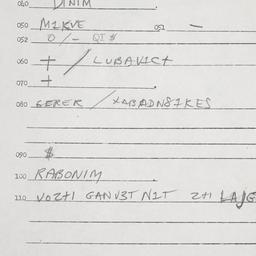 040 DINIM
050 MIKVE 051 —
052 0/- QI $
060 + / LUBAVICT
070 +
080 GEREK / X4BADN87KES
090 $
100 RABONIM
110 VOZTI GANV3T N1T ZTI LAJG